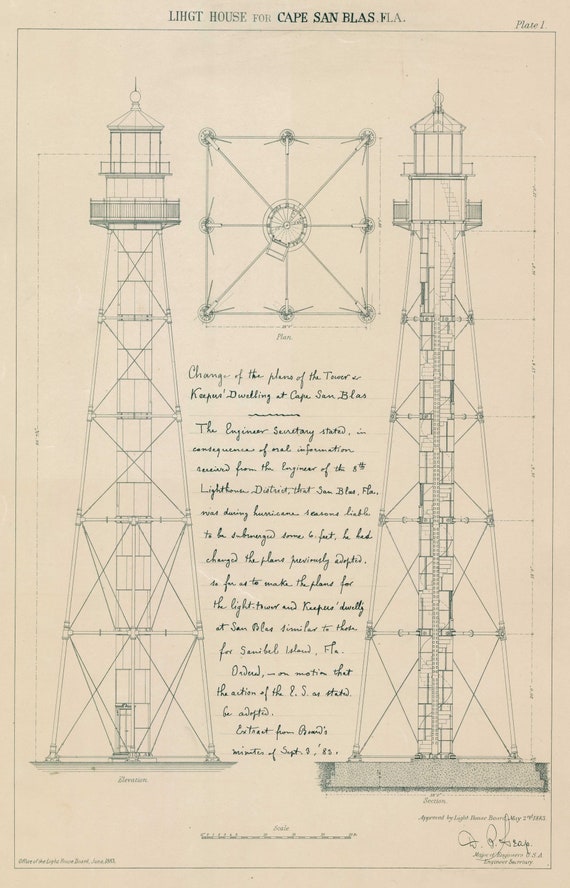 LIHGT HOUSE FOR CAPE SAN BLAS, FLA.
Plate 1.
Plan.
Change of the plans of the Tower &
Keepers' Dwelling at Cape San Blas
The Engineer Secretary stated, in
consequence of oral information
received from the Engineer of the 8th
Lighthouse District, that San Blas, Fla.
was during hurricane seasons liable
to be submerged some 6 feet, he had
changed the plans previously adopted,
so far as to make the plans for
the light-tower and Keepers' dwell'g
at San Blas similar to those
for Sanibel Island, Fla.
Ordered, — on motion that
the action of the E. S. as stated
be adopted.
Extract from Board's
minutes of Sept. 3, '83.
Elevation.
Section.
Scale
Approved by Light House Board, May 2nd 1883
D. P. Heap.
Major of Engineers U.S.A.
Engineer Secretary
Office of the Light House Board, June, 1883.